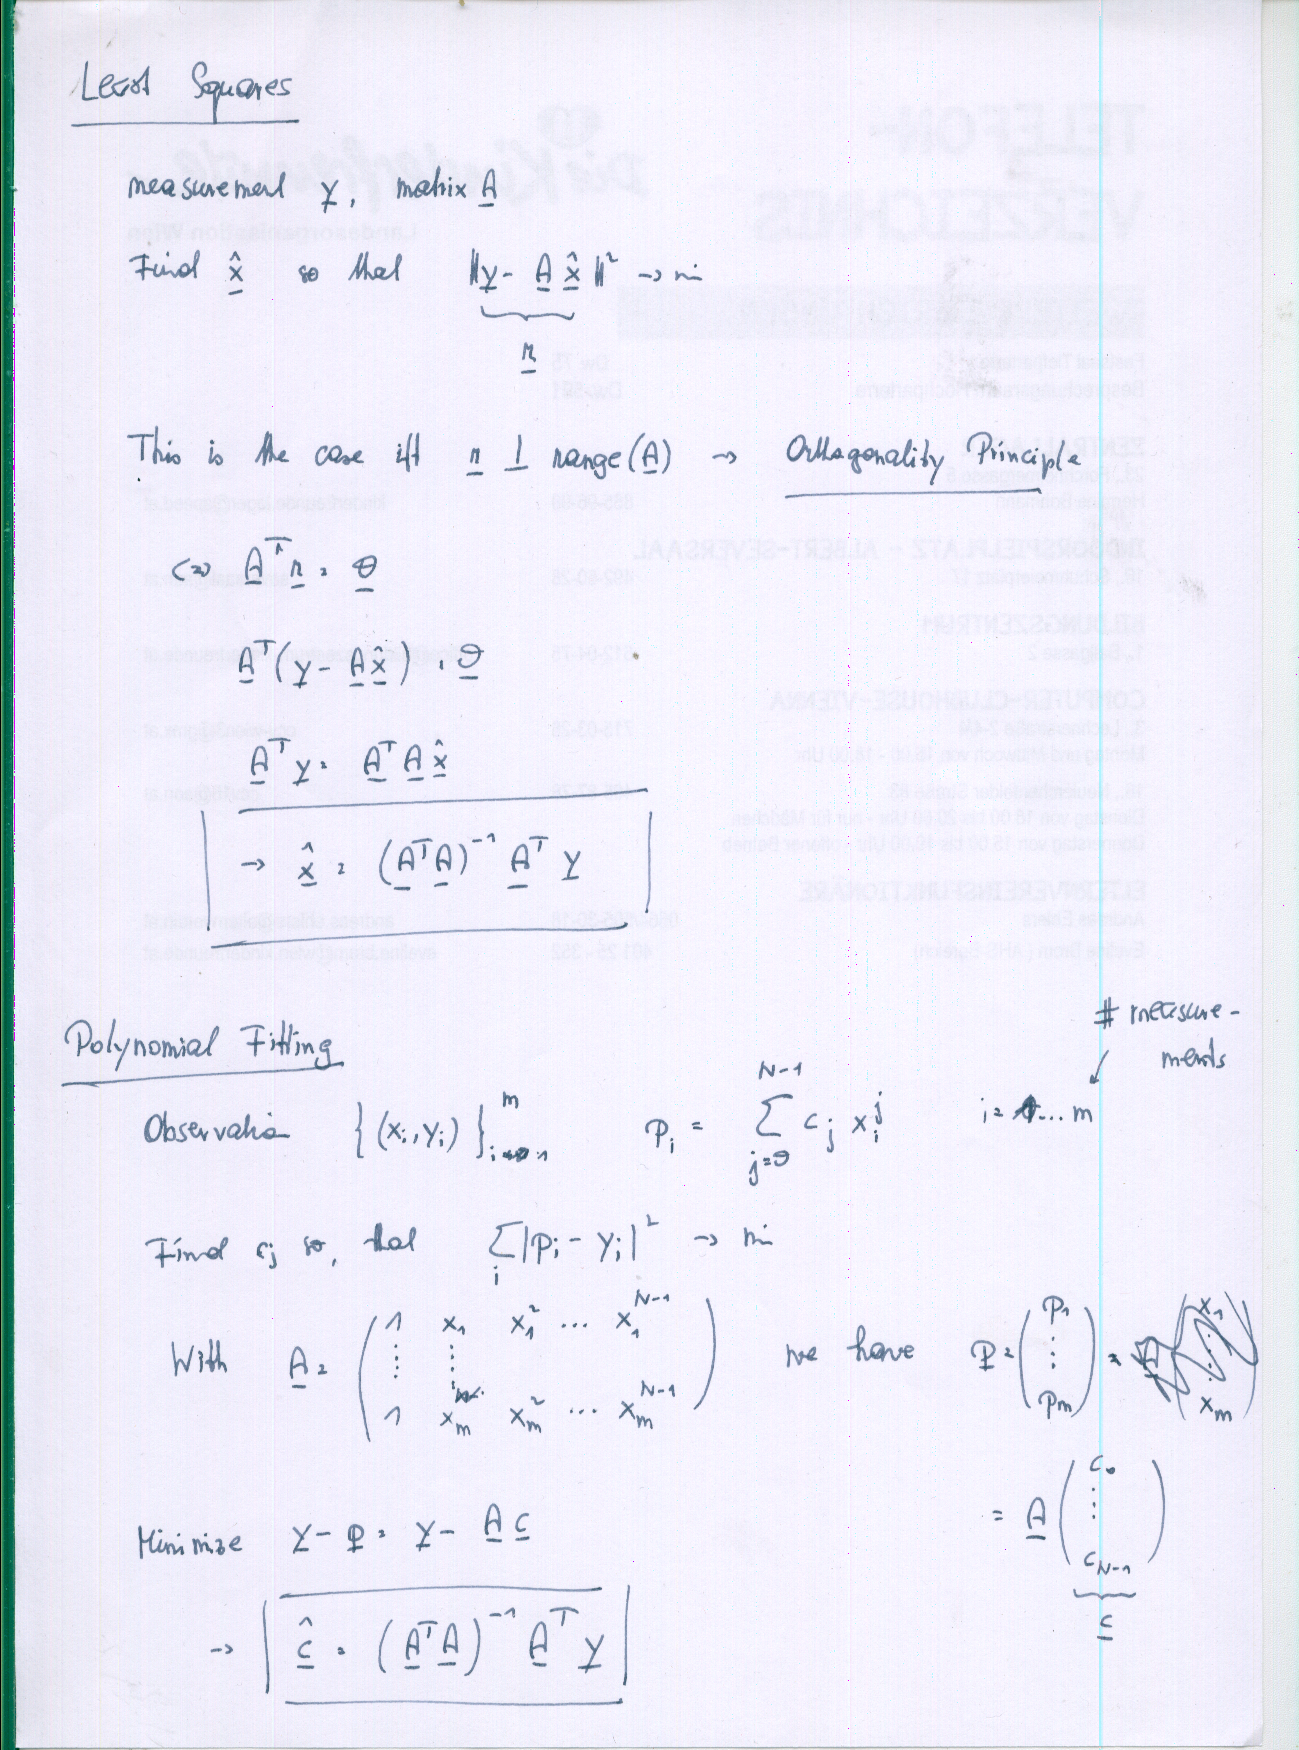 Least Squares
measurement y, matrix A
Find x̂ so that ‖y - A x̂‖² → min
r
This is the case iff r ⊥ range(A) → Orthogonality Principle
⇔ Aᵀ r = 0
Aᵀ(y - A x̂) = 0
Aᵀ y = Aᵀ A x̂
→ x̂ = (AᵀA)⁻¹ Aᵀ y
Polynomial Fitting
# measure-
ments
Observation {(xᵢ, yᵢ)}ᵢ₌₁ᵐ pᵢ = Σⱼ₌₀ᴺ⁻¹ cⱼ xᵢʲ i = 1...m
Find cⱼ so, that Σᵢ |pᵢ - yᵢ|² → min
With A = ( 1 x₁ x₁² ... x₁ᴺ⁻¹ ⋮ ⋮ 1 xₘ xₘ² ... xₘᴺ⁻¹ ) we have p = ( p₁ ⋮ pₘ )
= A ( c₀ ⋮ c_N-1 )
c
Minimize y - p = y - A c
→ ĉ = (AᵀA)⁻¹ Aᵀ y